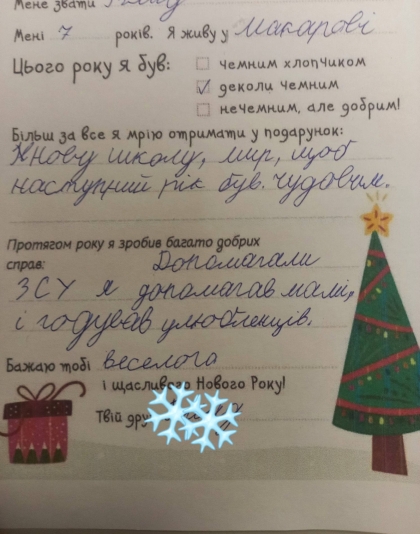 Мене звати
Мені 7 років. Я живу у Макарові
Цього року я був:
чемним хлопчиком
деколи чемним
нечемним, але добрим!
Більш за все я мрію отримати у подарунок:
нову школу, мир, щоб
наступний рік був чудовим.
Протягом року я зробив багато добрих
справ: Допомагали
ЗСУ я допомагав мамі,
і годував улюбленців.
Бажаю тобі веселого
і щасливого Нового Року!
Твій